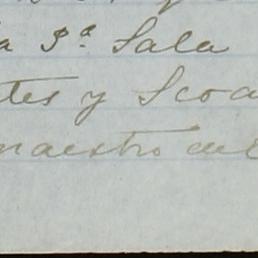 a 3ª Sala
tes y Scoa
maestro del